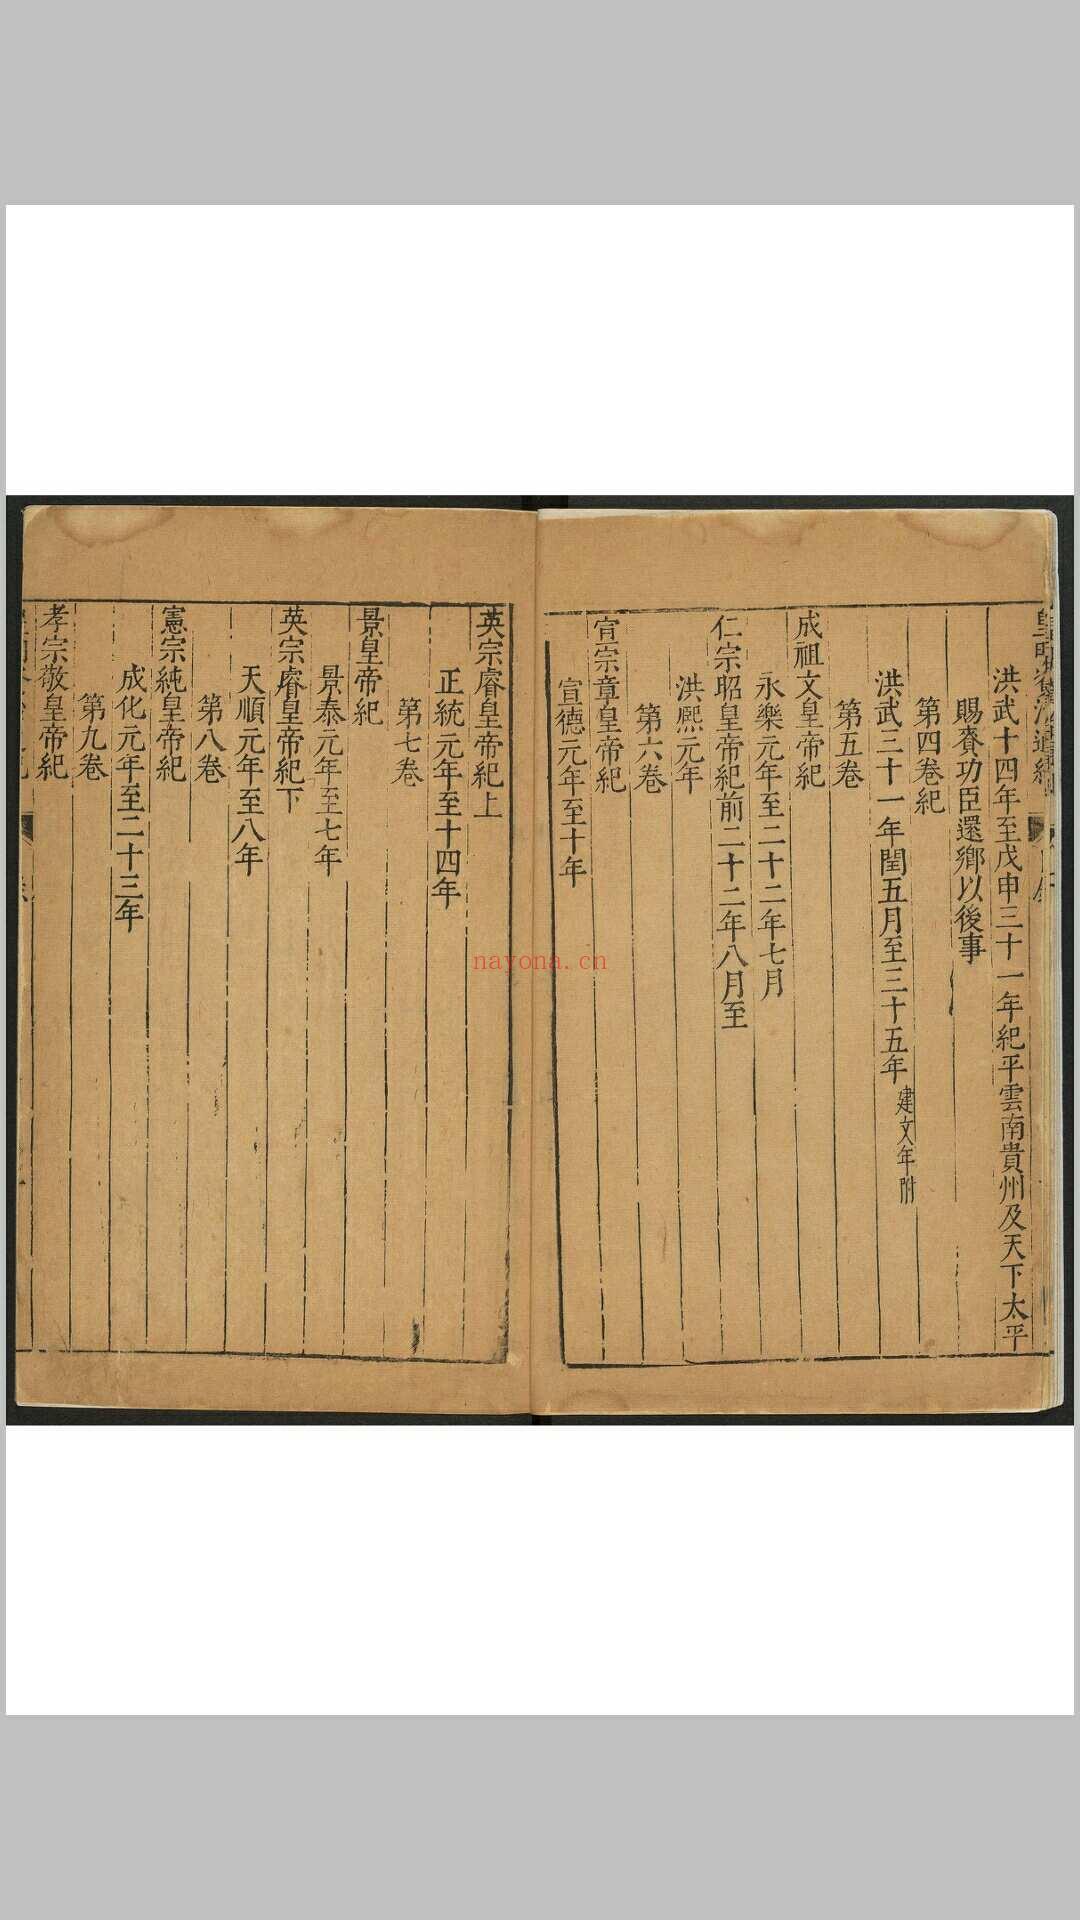 洪武十四年至戊申三十一年紀平雲南貴州及天下太平
賜賚功臣還鄉以後事
第四卷紀
洪武三十一年閏五月至三十五年建文年附
第五卷
成祖文皇帝紀
永樂元年至二十二年七月
仁宗昭皇帝紀前二十二年八月至
洪熙元年
第六卷
宣宗章皇帝紀
宣德元年至十年
英宗睿皇帝紀上
正統元年至十四年
第七卷
景皇帝紀
景泰元年至七年
英宗睿皇帝紀下
天順元年至八年
第八卷
憲宗純皇帝紀
成化元年至二十三年
第九卷
孝宗敬皇帝紀
nayona.cn